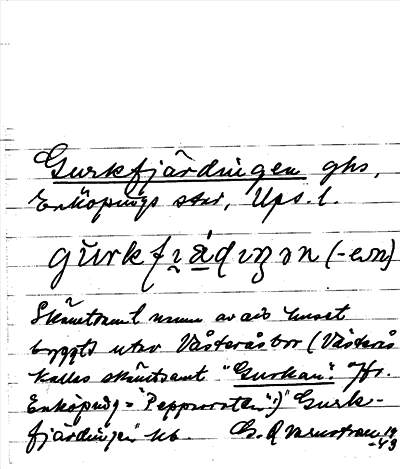 Gurkfjärdingen ghs,
Enköpings stad, Ups. l.
gŭrkfjạ́dıŋən (-en)
Skämtsamt namn av att huset
byggts utav Västeråsbor (Västerås
kallas skämtsamt "Gurkan". Jfr.
Enköping = "Pepparroten".) "Gurk-
fjärdingen"